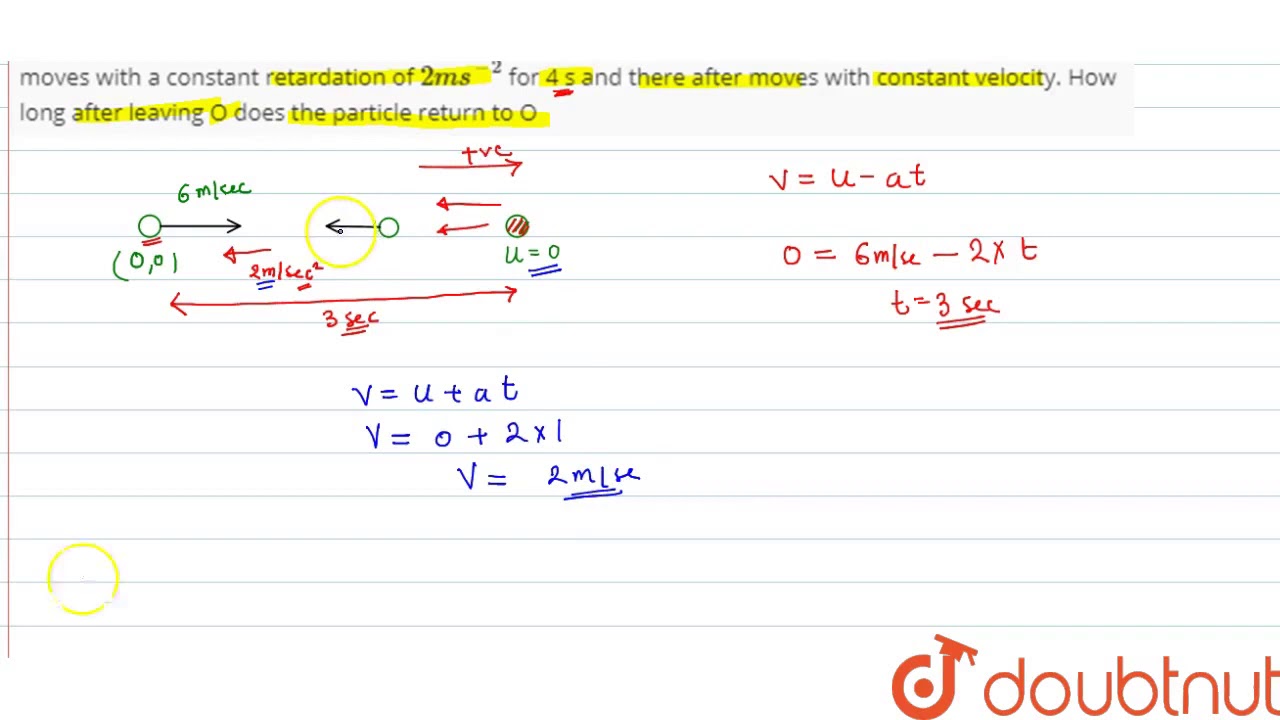 moves with a constant retardation of 2ms⁻² for 4 s and there after moves with constant velocity. How
long after leaving O does the particle return to O
+ve
6 m/sec
(0,0)
2m/sec²
u = 0
3 sec
v = u - at
0 = 6m/se - 2 × t
t = 3 sec
v = u + at
v = 0 + 2×1
v = 2m/se
doubtnut